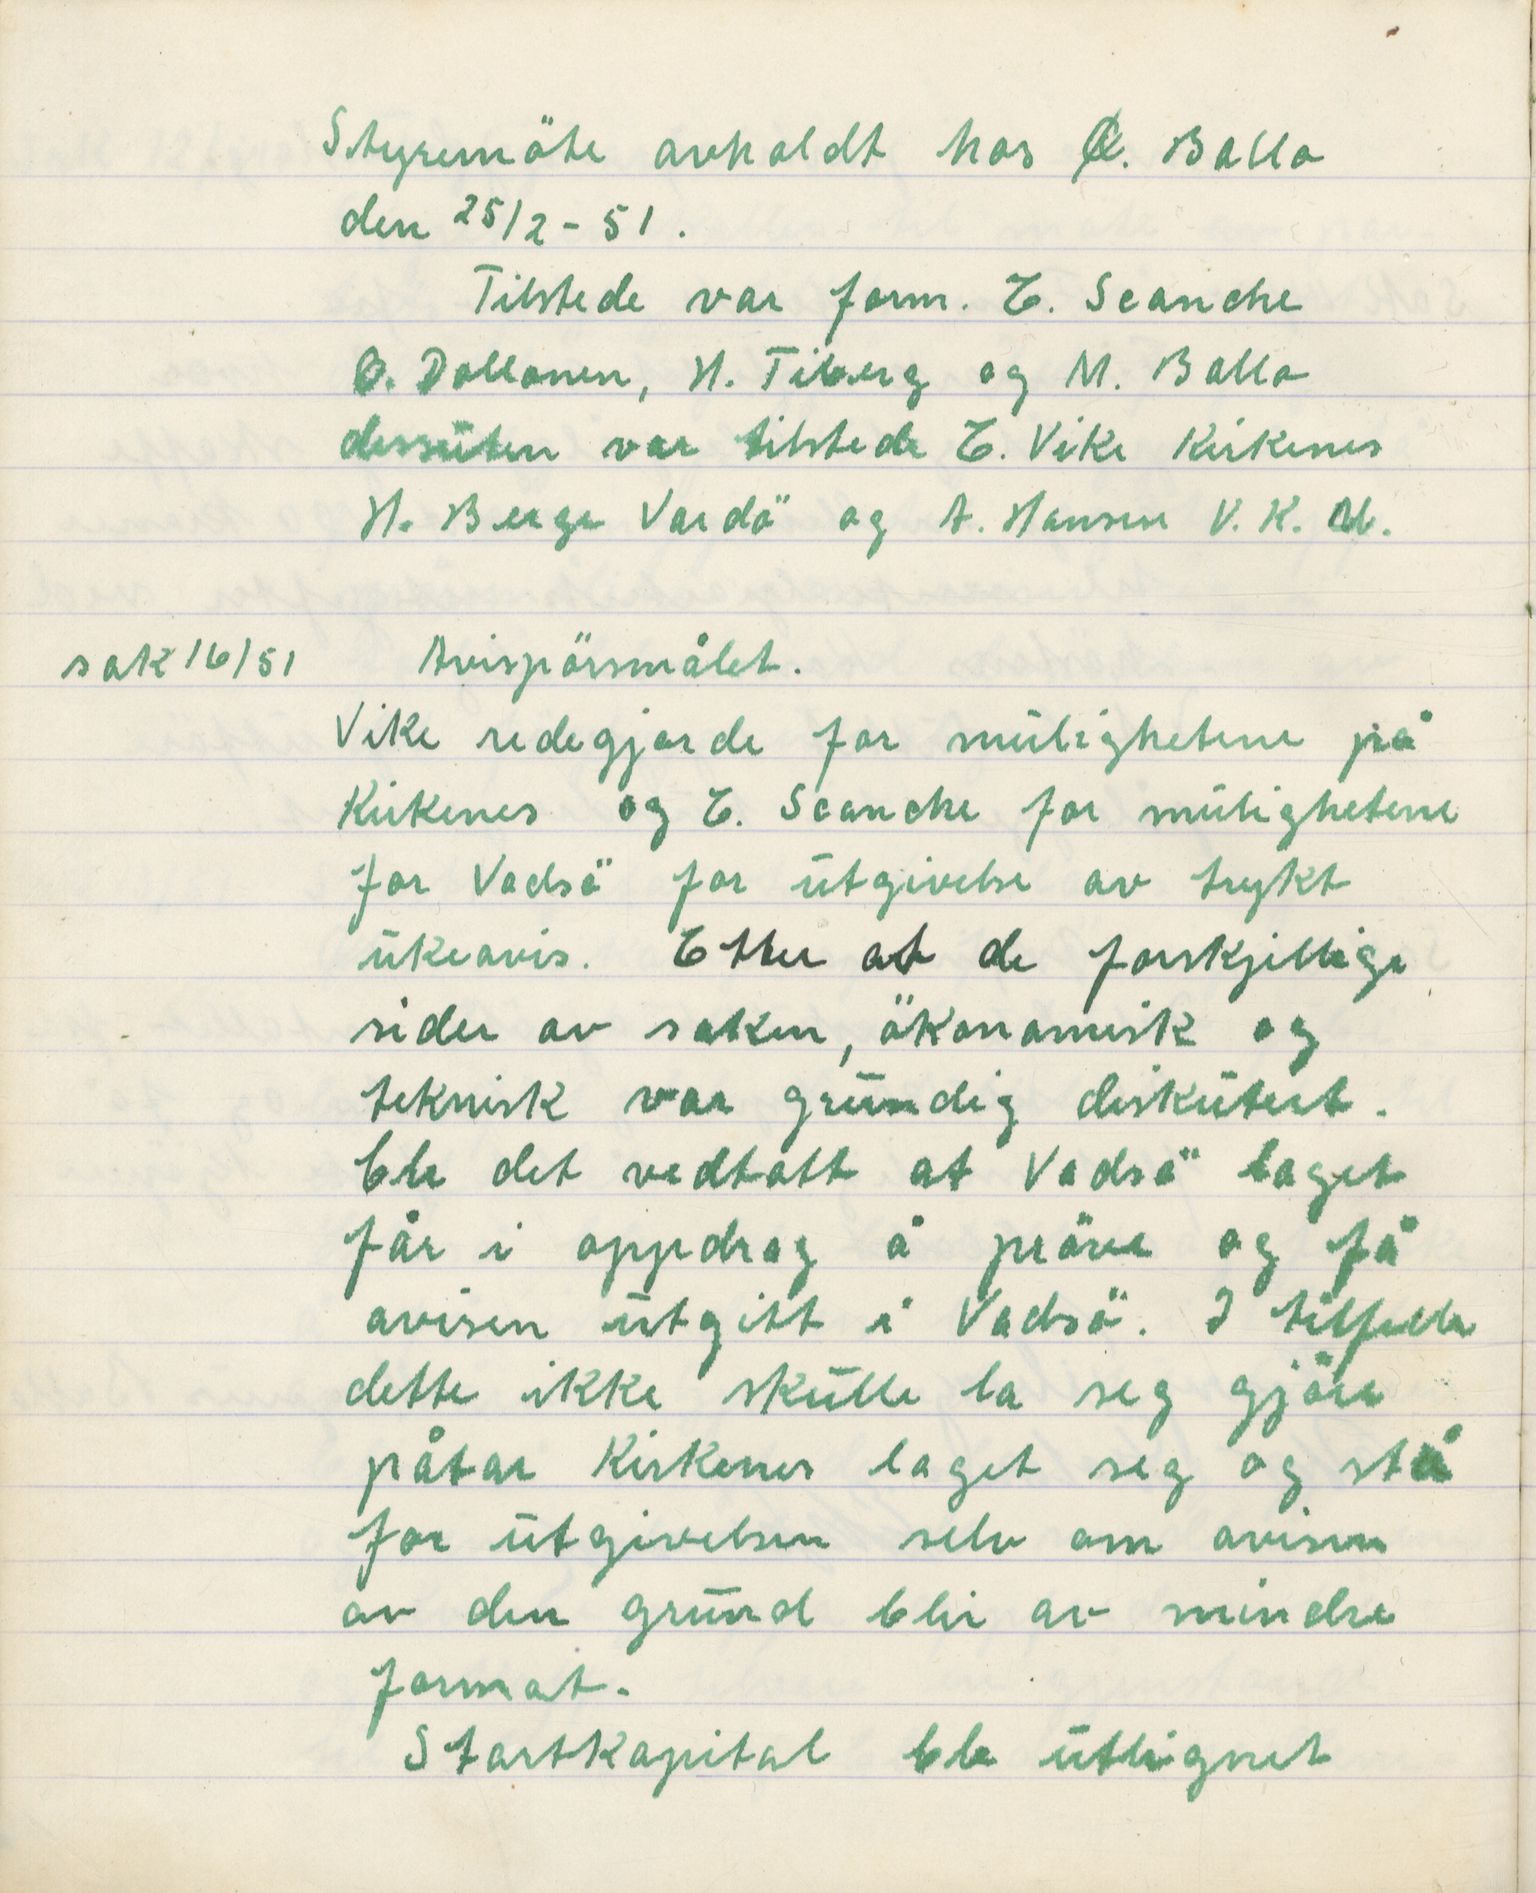 Styremöte avholdt hos O. Ballo
den 25/2 - 51.
Tilstede var form. E. Scanche
O. Dallonen, H. Tiberg og M. Ballo
dessuten var tilstede E. Vike Kirkenes
H. Berge Vardö og A. Hansen V. K. U.
sak 16/51 Avispörsmålet.
Vike redegjorde for mulighetene på
Kirkenes og E. Scanche for mulighetene
for Vadsö for utgivelse av trykt
ukeavis. Etter at de forskjellige
sider av saken, ökonomisk og
teknisk var grundig diskutert.
ble det vedtatt at Vadsö laget
får i oppdrag å pröve og få
avisen utgitt i Vadsö. I tilfelle
dette ikke skulle la seg gjöre
påtar Kirkenes laget seg og stå
for utgivelsen selv om avisen
av den grund blir av mindre
format.
Startkapital ble utlignet